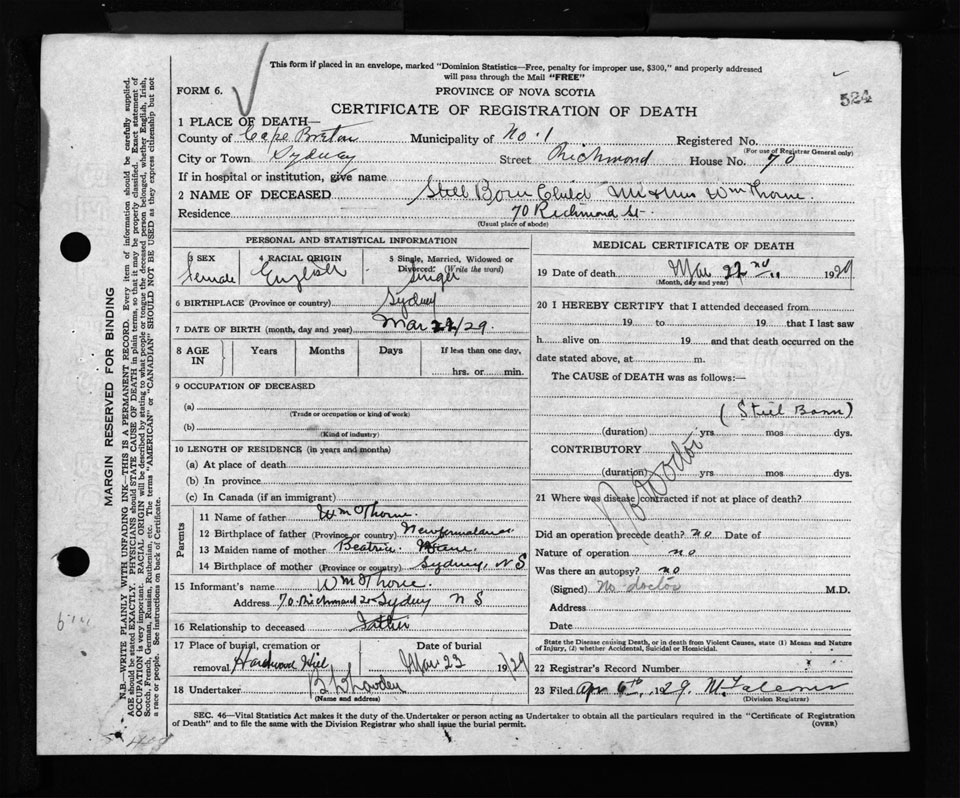 This form if placed in an envelope, marked "Dominion Statistics—Free, penalty for improper use, $300," and properly addressed
will pass through the Mail "FREE"
FORM 6.
PROVINCE OF NOVA SCOTIA
524
CERTIFICATE OF REGISTRATION OF DEATH
1 PLACE OF DEATH—
County of Cape Breton Municipality of No. 1 Registered No.
(For use of Registrar General only)
City or Town Sydney Street Richmond House No. 70
If in hospital or institution, give name
2 NAME OF DECEASED Still Born Child Mr & Mrs Wm Thorne.
Residence 70 Richmond St.
(Usual place of abode)
PERSONAL AND STATISTICAL INFORMATION
3 SEX 4 RACIAL ORIGIN 5 Single, Married, Widowed or
Divorced? (Write the word)
Female English Single
6 BIRTHPLACE (Province or country) Sydney
7 DATE OF BIRTH (month, day and year) Mar 22/29.
8 AGE IN Years Months Days If less than one day,
hrs. or min.
9 OCCUPATION OF DECEASED
(a)
(Trade or occupation or kind of work)
(b)
(Kind of industry)
10 LENGTH OF RESIDENCE (in years and months)
(a) At place of death
(b) In province
(c) In Canada (if an immigrant)
Parents
11 Name of father Wm Thorne.
12 Birthplace of father (Province or country) Newfoundland
13 Maiden name of mother Beatrice
14 Birthplace of mother (Province or country) Sydney, N S
15 Informant's name Wm Thorne.
Address 70 Richmond St Sydney N S
16 Relationship to deceased Father
17 Place of burial, cremation or removal Hardwood Hill
Date of burial Mar 23 1929
18 Undertaker
(Name and address)
MEDICAL CERTIFICATE OF DEATH
19 Date of death Mar 22nd 1929
(Month, day and year)
20 I HEREBY CERTIFY that I attended deceased from
19 to 19 that I last saw
h alive on 19 and that death occurred on the
date stated above, at m.
The CAUSE of DEATH was as follows:—
(Still Born)
(duration) yrs mos dys.
CONTRIBUTORY
(duration) yrs mos dys.
No Doctor
21 Where was disease contracted if not at place of death?
Did an operation precede death? no Date of
Nature of operation no
Was there an autopsy? no
(Signed) No doctor M.D.
Address
Date
State the Disease causing Death, or in death from Violent Causes, state (1) Means and Nature
of Injury, (2) whether Accidental, Suicidal or Homicidal.
22 Registrar's Record Number
23 Filed Apr 6th, 1929.
(Division Registrar)
SEC. 46—Vital Statistics Act makes it the duty of the Undertaker or person acting as Undertaker to obtain all the particulars required in the "Certificate of Registration
of Death" and to file the same with the Division Registrar who shall issue the burial permit.
(OVER)
MARGIN RESERVED FOR BINDING
N.B.—WRITE PLAINLY WITH UNFADING INK—THIS IS A PERMANENT RECORD. Every item of information should be carefully supplied.
AGE should be stated EXACTLY. PHYSICIANS should STATE CAUSE OF DEATH in plain terms, so that it may be properly classified. Exact statement of
OCCUPATION is very important. RACIAL ORIGIN will be described by stating to what people or tongue the deceased person belonged, whether English, Irish,
Scotch, French, German, Russian, Ruthenian, etc. The terms "AMERICAN" or "CANADIAN" SHOULD NOT BE USED as they express citizenship but not
a race or people. See instructions on back of Certificate.